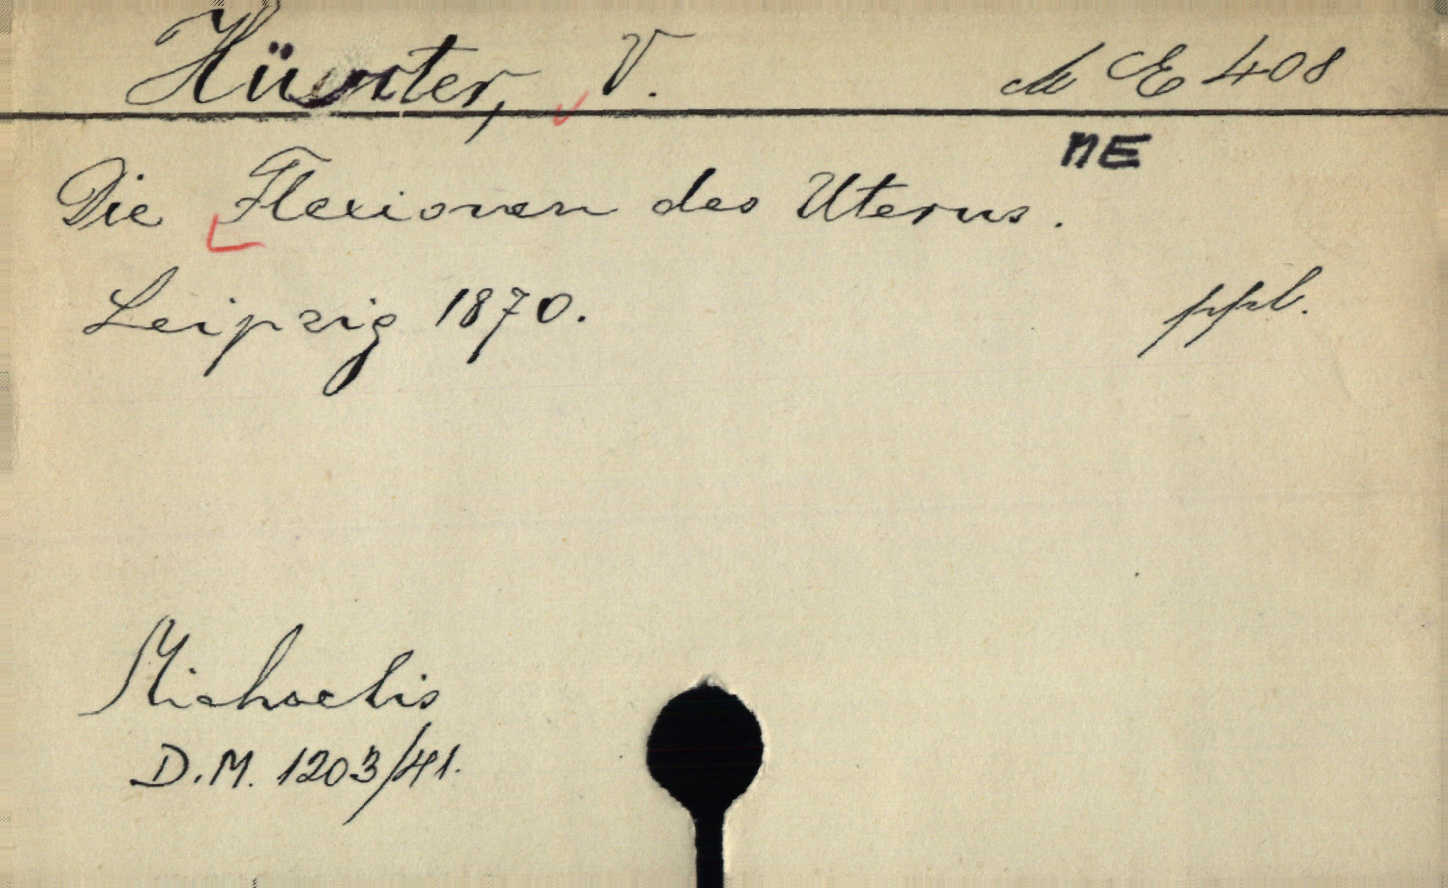 Hüter, V. M E 408
NE
Die Flexionen des Uterus.
Leipzig 1870. ppbl.
Michaelis
D.M. 1203/41.